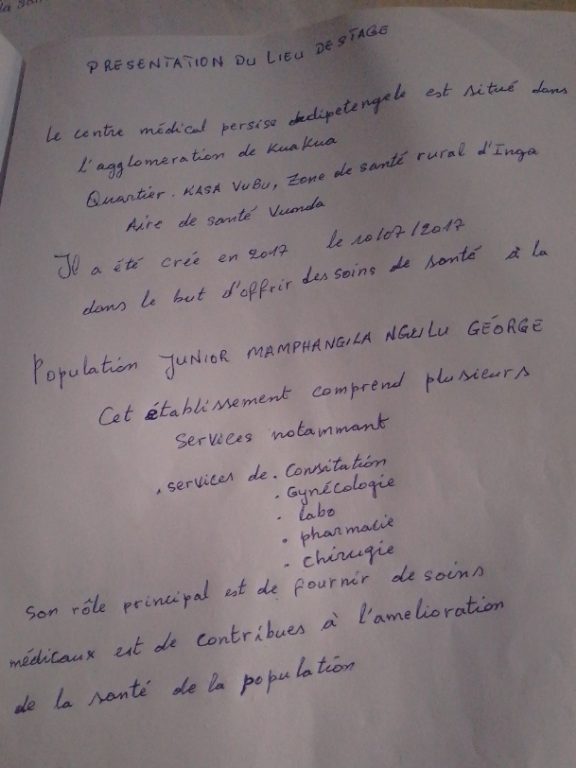 PRESENTATION DU LIEU DE STAGE
Le centre médical persise dedipetengele est situé dans
L'agglomeration de Kuakua
Quartier. KASA VUBU, Zone de santé rural d'Inga
Aire de santé Vunda
Il a été creé en 2017 le 10/07/2017
dans le but d'offrir des soins de santé à la
Population JUNIOR MAMPHANGILA NGUILU GÉORGE
Cet établissement comprend plusieurs
Services notammant
. services de . Consitation
. Gynécologie
. labo
. pharmacie
. chirugie
Son rôle principal est de fournir de soins
médicaux est de contribues à l'amelioration
de la santé de la population